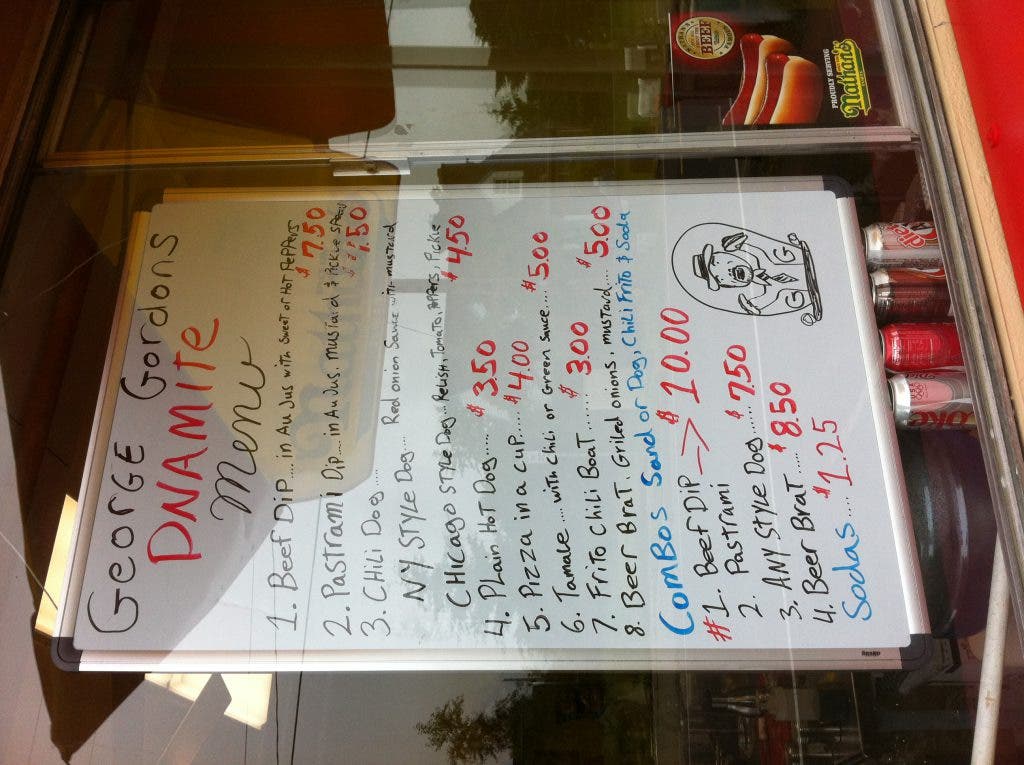 George Gordons
DNAMITE
menu
1. Beef Dip .... in Au Jus with Sweet or Hot Peppers
$ 7.50
2. Pastrami Dip .... in Au Jus, mustard & Pickle Spear
$ 7.50
3. CHili Dog ....
NY STYLE Dog ... Red onion Sauce with mustard
CHicago STYLE Dog .. Relish, Tomato, Peppers, Pickle
$ 4.50
4. Plain Hot Dog .... $ 3.50
5. Pizza in a cup ..... $ 4.00
6. Tamale .... with Chili or Green Sauce .... $ 5.00
7. Frito Chili Boat ...... $ 3.00
8. Beer Brat, Grilled onions, mustard .... $ 5.00
Combos Sand or Dog, Chili Frito & Soda
#1. Beef Dip
Pastrami → $ 10.00
2. ANY STYLE Dog ..... $ 7.50
3. Beer Brat ..... $ 8.50
4. Sodas .... $ 1.25
G G
PROUDLY SERVING
Nathan's
FAMOUS
BEEF
Diet
Coke